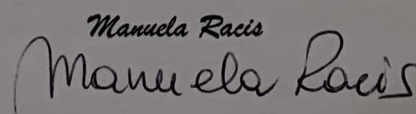 Manuela Racis
Manuela Racis